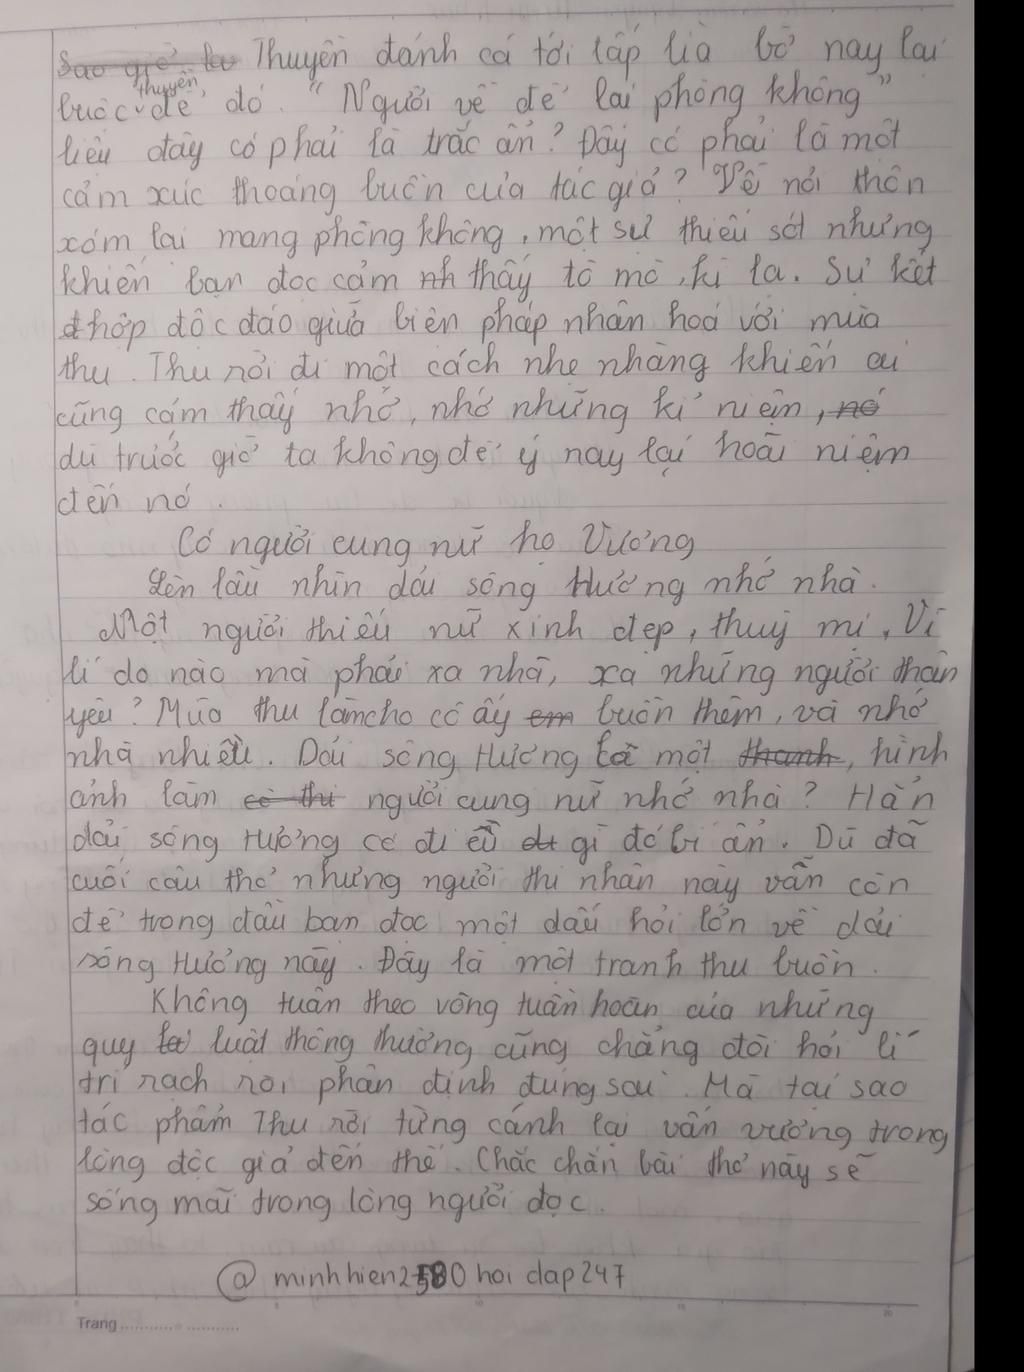 Sao giờ lư Thuyền đánh cá tới tấp lìa bờ nay lại
buộc thuyền để đó. "Người về để lại phòng không"
liệu đây có phải là trắc ẩn? Đây có phải là một
cảm xúc thoáng buồn của tác giả? Về nơi thôn
xóm lại mang phòng không, một sự thiếu sót nhưng
khiến bạn đọc cảm nh thấy tò mò, kì lạ. Sự kết
đ hợp độc đáo giữa biện pháp nhân hoá với mùa
thu. Thu rời đi một cách nhẹ nhàng khiến ai
cũng cảm thấy nhớ, nhớ những kỉ niệm, nó
dù trước giờ ta không để ý nay lại hoài niệm
đến nó.
Có người cung nữ họ Vương
Lên lầu nhìn dải sông Hương nhớ nhà.
Một người thiếu nữ xinh đẹp, thuỳ mị, Vì
lí do nào mà phải xa nhà, xa những người thân
yêu? Mùa thu làm cho cô ấy em buồn thêm, và nhớ
nhà nhiều. Dải sông Hương là một thanh, hình
ảnh làm cô thi người cung nữ nhớ nhà? Hẳn
dải sông Hương có điều đi gì đó bí ẩn. Dù đã
cuối câu thơ nhưng người thi nhân này vẫn còn
để trong đầu bạn đọc một dấu hỏi lớn về dải
sông Hương này. Đây là một tranh thu buồn.
Không tuân theo vòng tuần hoàn của những
quy lu luật thông thường cũng chẳng đòi hỏi lí
trí rạch ròi phân định đúng sai. Mà tại sao
tác phẩm Thu rơi từng cánh lại vấn vương trong
lòng độc giả đến thế. Chắc chắn bài thơ này sẽ
sống mãi trong lòng người đọc.
@ minhhien2580 hoi dap 247
Trang